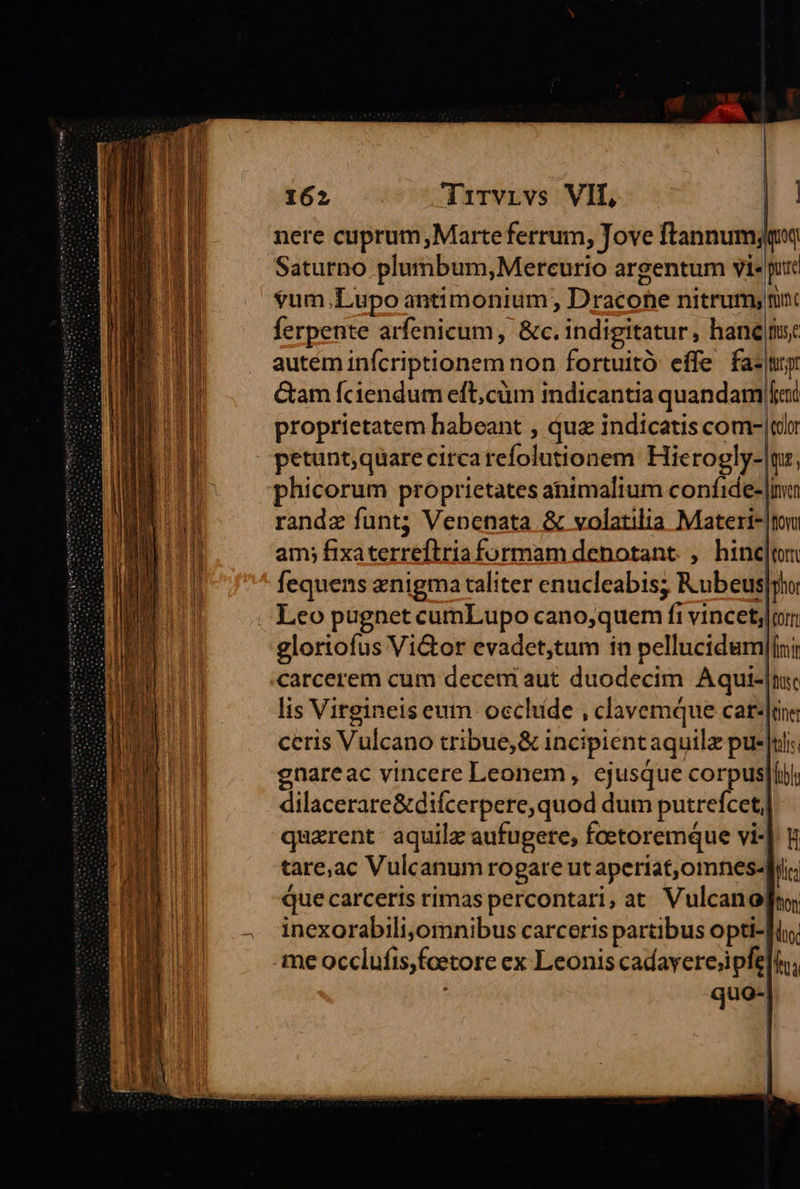 162 TITVLVS VII,
nere cuprum, Marte ferrum, Jove ſtannum,
Saturno plumbum, Mercurio argentum vi-
vum. Lupo antimonium, Dracone nitrum,
ſerpente arſenicum, &c. indigitatur, hanc
autem inſcriptionem non fortuitò eſſe fa-
ctam ſciendum eſt, cùm indicantia quandam
proprietatem habeant, quæ indicatis com-
petunt, quare circa reſolutionem Hierogly-
phicorum proprietates animalium conſide-
randæ ſunt; Venenata & volatilia Materi-
am; fixa terreſtria formam denotant, hinc
ſequens ænigma taliter enucleabis; Rubeus
Leo pugnet cum Lupo cano, quem ſi vincet,
glorioſus Victor evadet, tum in pellucidum
carcerem cum decem aut duodecim Aqui-
lis Virgineis eum occlude, clavemque car-
ceris Vulcano tribue, & incipient aquilæ pu-
gnare ac vincere Leonem, ejusque corpus
dilacerare & diſcerpere, quod dum putreſcet,
quærent aquilæ aufugere, fœtoremque vi-
tare, ac Vulcanum rogare ut aperiat, omnes-
que carceris rimas percontari, at Vulcano
inexorabili, omnibus carceris partibus opti-
me occluſis, fœtore ex Leonis cadavere, ipſę
quo-